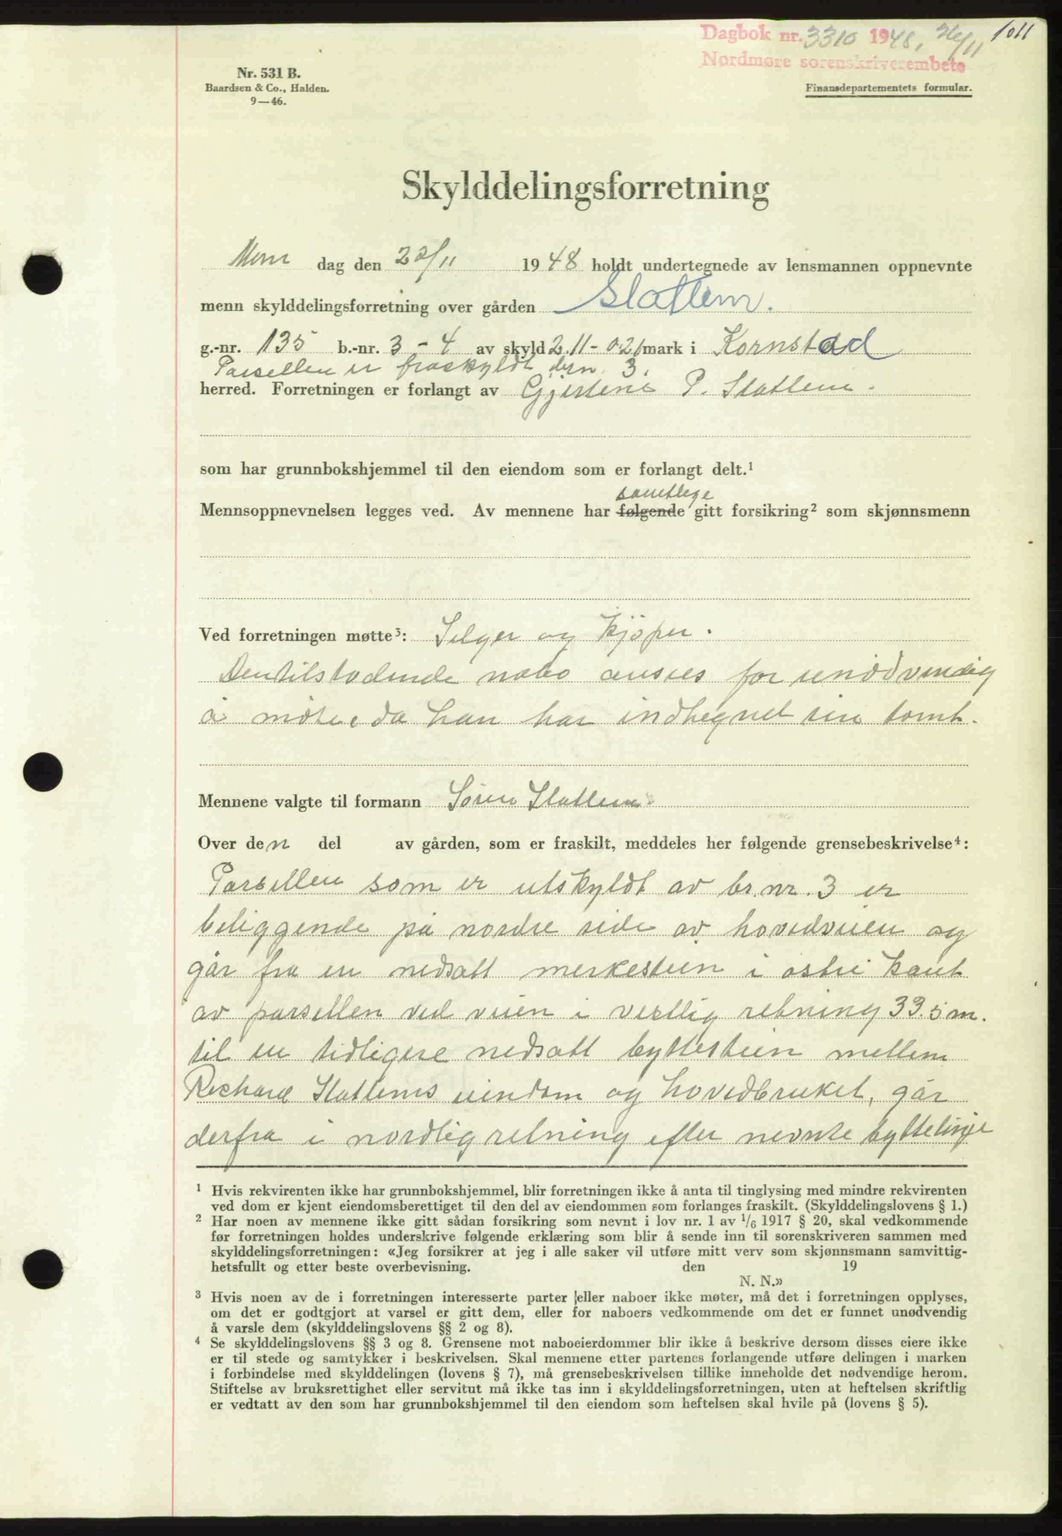 Dagbok nr. 3310 1948, 26/11 1011
Nordmøre sorenskriverembete
Nr. 531 B.
Baardsen & Co., Halden.
9—46.
Finansdepartementets formular.
Skylddelingsforretning
Mon dag den 22/11 1948 holdt undertegnede av lensmannen oppnevnte
menn skylddelingsforretning over gården Slatlem.
g.-nr. 135 b.-nr. 3 - 4 av skyld 2.11 - 0.21 mark i Kornstad
Parsellen er fraskyldt brn. 3.
herred. Forretningen er forlangt av Gjertine P. Slatlem.
som har grunnbokshjemmel til den eiendom som er forlangt delt.¹
samtlige
Mennsoppnevnelsen legges ved. Av mennene har følgende gitt forsikring² som skjønnsmenn
Ved forretningen møtte³: Selger og kjøper.
Den tilstødende nabo ansees for unødvendig
å møte, da han har indhegnet sin tomt.
Mennene valgte til formann Søren Slatlem.
Over den del av gården, som er fraskilt, meddeles her følgende grensebeskrivelse⁴:
Parsellen som er utskyldt av br. nr. 3 er
beliggende på nordre side av hovedveien og
går fra en nedsatt merkestein i østre kant
av parsellen ved veien i vestlig retning 33.5 m.
til en tidligere nedsatt byttestein mellem
Richard Slatlems eiendom og hovedbruket, går
derfra i nordlig retning efter nevnte byttelinje
¹ Hvis rekvirenten ikke har grunnbokshjemmel, blir forretningen ikke å anta til tinglysing med mindre rekvirenten
ved dom er kjent eiendomsberettiget til den del av eiendommen som forlanges fraskilt. (Skylddelingslovens § 1.)
² Har noen av mennene ikke gitt sådan forsikring som nevnt i lov nr. 1 av 1/6 1917 § 20, skal vedkommende
før forretningen holdes underskrive følgende erklæring som blir å sende inn til sorenskriveren sammen med
skylddelingsforretningen: «Jeg forsikrer at jeg i alle saker vil utføre mitt verv som skjønnsmann samvittig-
hetsfullt og etter beste overbevisning. den 19
N. N.»
³ Hvis noen av de i forretningen interesserte parter eller naboer ikke møter, må det i forretningen opplyses,
om det er godtgjort at varsel er gitt dem, eller for naboers vedkommende om det er funnet unødvendig
å varsle dem (skylddelingslovens §§ 2 og 8).
⁴ Se skylddelingslovens §§ 3 og 8. Grensene mot naboeierdommer blir ikke å beskrive dersom disses eiere ikke
er til stede og samtykker i beskrivelsen. Skal mennene etter partenes forlangende utføre delingen i marken
i forbindelse med skylddelingen (lovens § 7), må grensebeskrivelsen tillike inneholde det nødvendige herom.
Stiftelse av bruksrettighet eller servitut må ikke tas inn i skylddelingsforretningen, uten at heftelsen skriftlig
er vedtatt av den som har grunnbokshjemmel til den eiendom som heftelsen skal hvile på (lovens § 5).